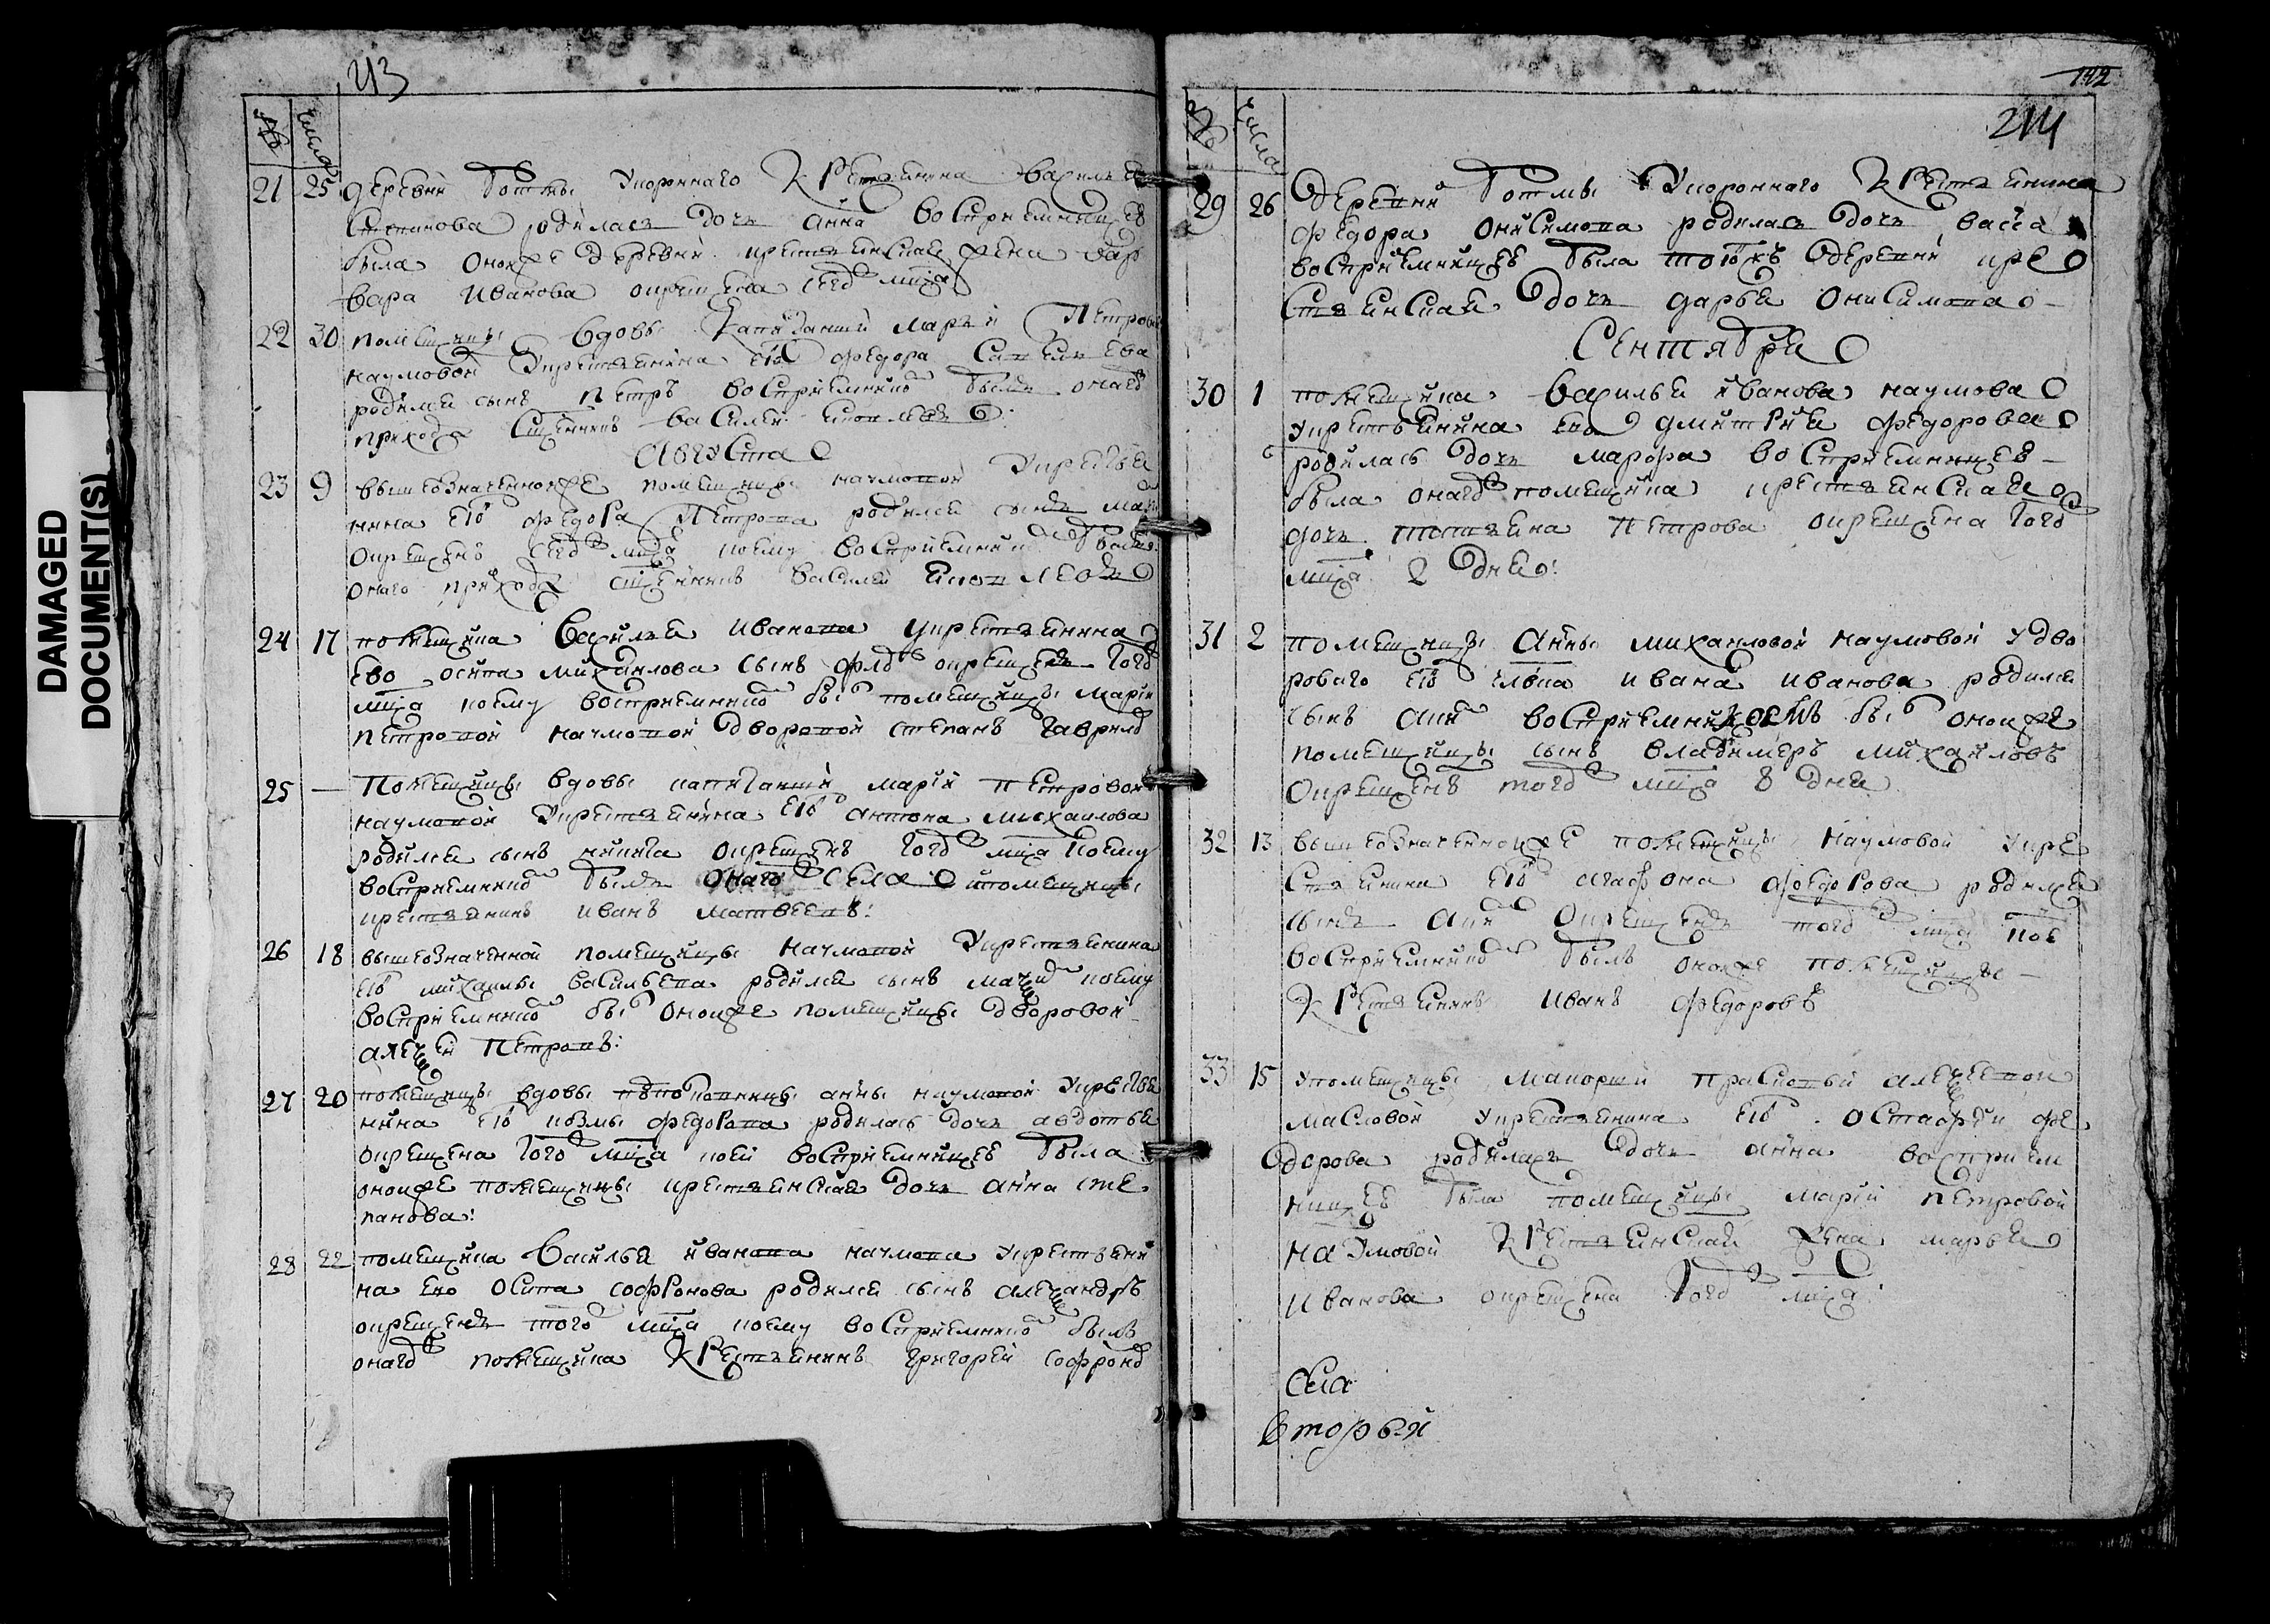 DAMAGED
DOCUMENT(S)
213
№ числа
21 25 деревни Ботмы у коронного крестьянина василья
Степанова родилась дочь анна восприемницею
была оной же деревни крестьянская жена вар
вара иванова окрещена сего мца
22 30 помещицы вдовы капитанши марьи Петровой
наумовой у крестьянина ея федора савельева
родился сынъ петръ восприемникомъ былъ онаго
прихода священникъ василей
Августа
23 9 вышеозначенной же помещицы наумовой у крестья
нина ея федора Петрова родился сынъ
окрещенъ сего мца коему восприемникомъ былъ
онаго прихода священникъ василей
24 17 помещика василья иванова у крестьянина
ево осипа михайлова сынъ окрещенъ того
мца коему восприемникомъ былъ помещицы марьи
петровой наумовой дворовой степанъ гаврилов
25 — Помещицы вдовы капитанши марьи петровой
наумовой у крестьянина ея антона михайлова
родился сынъ никита окрещенъ того мца коему
восприемникомъ былъ онаго села помещицы
крестьянинъ иванъ матвеевъ:
26 18 вышеозначенной помещицы наумовой у крестьянина
ея михаилы васильева родился сынъ коему
восприемникомъ былъ оной же помещицы дворовой
алексей петровъ:
27 20 помещицы вдовы подполковницы анны наумовой у крестья
нина ея козмы федорова родилась дочь авдотья
окрещена того мца коей восприемницею была
оной же помещицы крестьянская дочь анна сте
панова:
28 22 помещика василья иванова наумова у крестьяни
на ево осипа софронова родился сынъ александръ
окрещенъ того мца коему восприемникомъ былъ
онаго помещика крестьянинъ григорей софронов
142
214
№ числа
29 26 деревни Ботмы у коронного крестьянина
федора онисимова родилась дочь васса
восприемницею была той же деревни кре
стьянская дочь дарья онисимова
Сентября
30 1 помещика василья иванова наумова
у крестьянина ево дмитрия федорова
родилась дочь марфа восприемницею
была онаго помещика крестьянская
дочь татьяна петрова окрещена того
мца 2 дня:
31 2 помещицы анны михайловой наумовой у дво
роваго ея члвка ивана иванова родился
сынъ восприемникомъ былъ оной же
помещицы сынъ владимеръ михайловъ
окрещенъ того мца 8 дня
32 13 вышеозначенной же помещицы наумовой у кре
стьянина ея агафона федорова родился
сынъ окрещенъ того мца кое
восприемникомъ былъ оной же помещицы
крестьянинъ иванъ федоровъ
33 15 у помещицы маиорши прасковьи алексеевой
масловой у крестьянина ея остафьи фе
дорова родилась дочь анна восприем
ницею была помещицы марьи петровой
наумовой крестьянская жена марья
иванова окрещена того мца
вторый